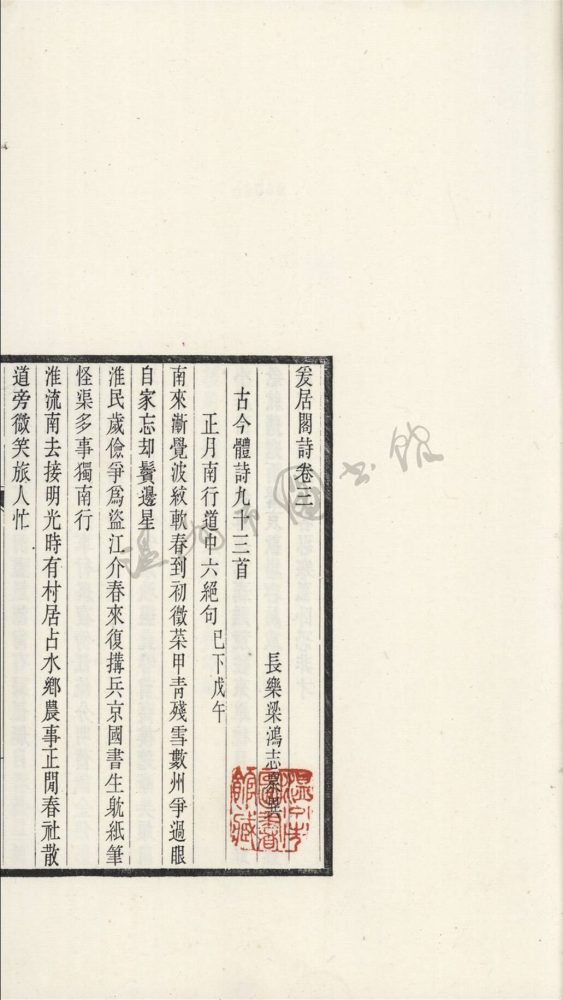 爰居閣詩卷三
長樂梁鴻志衆異
古今體詩九十三首
正月南行道中六絕句 巳下戊午
南來漸覺波紋軟春到初徵菜甲青殘雪數州爭過眼
自家忘却鬢邊星
淮民歲儉爭爲盜江介春來復搆兵京國書生躭紙筆
怪渠多事獨南行
淮流南去接明光時有村居占水鄉農事正閒春社散
道旁微笑旅人忙
溫州市圖書館藏
温州市圖书馆